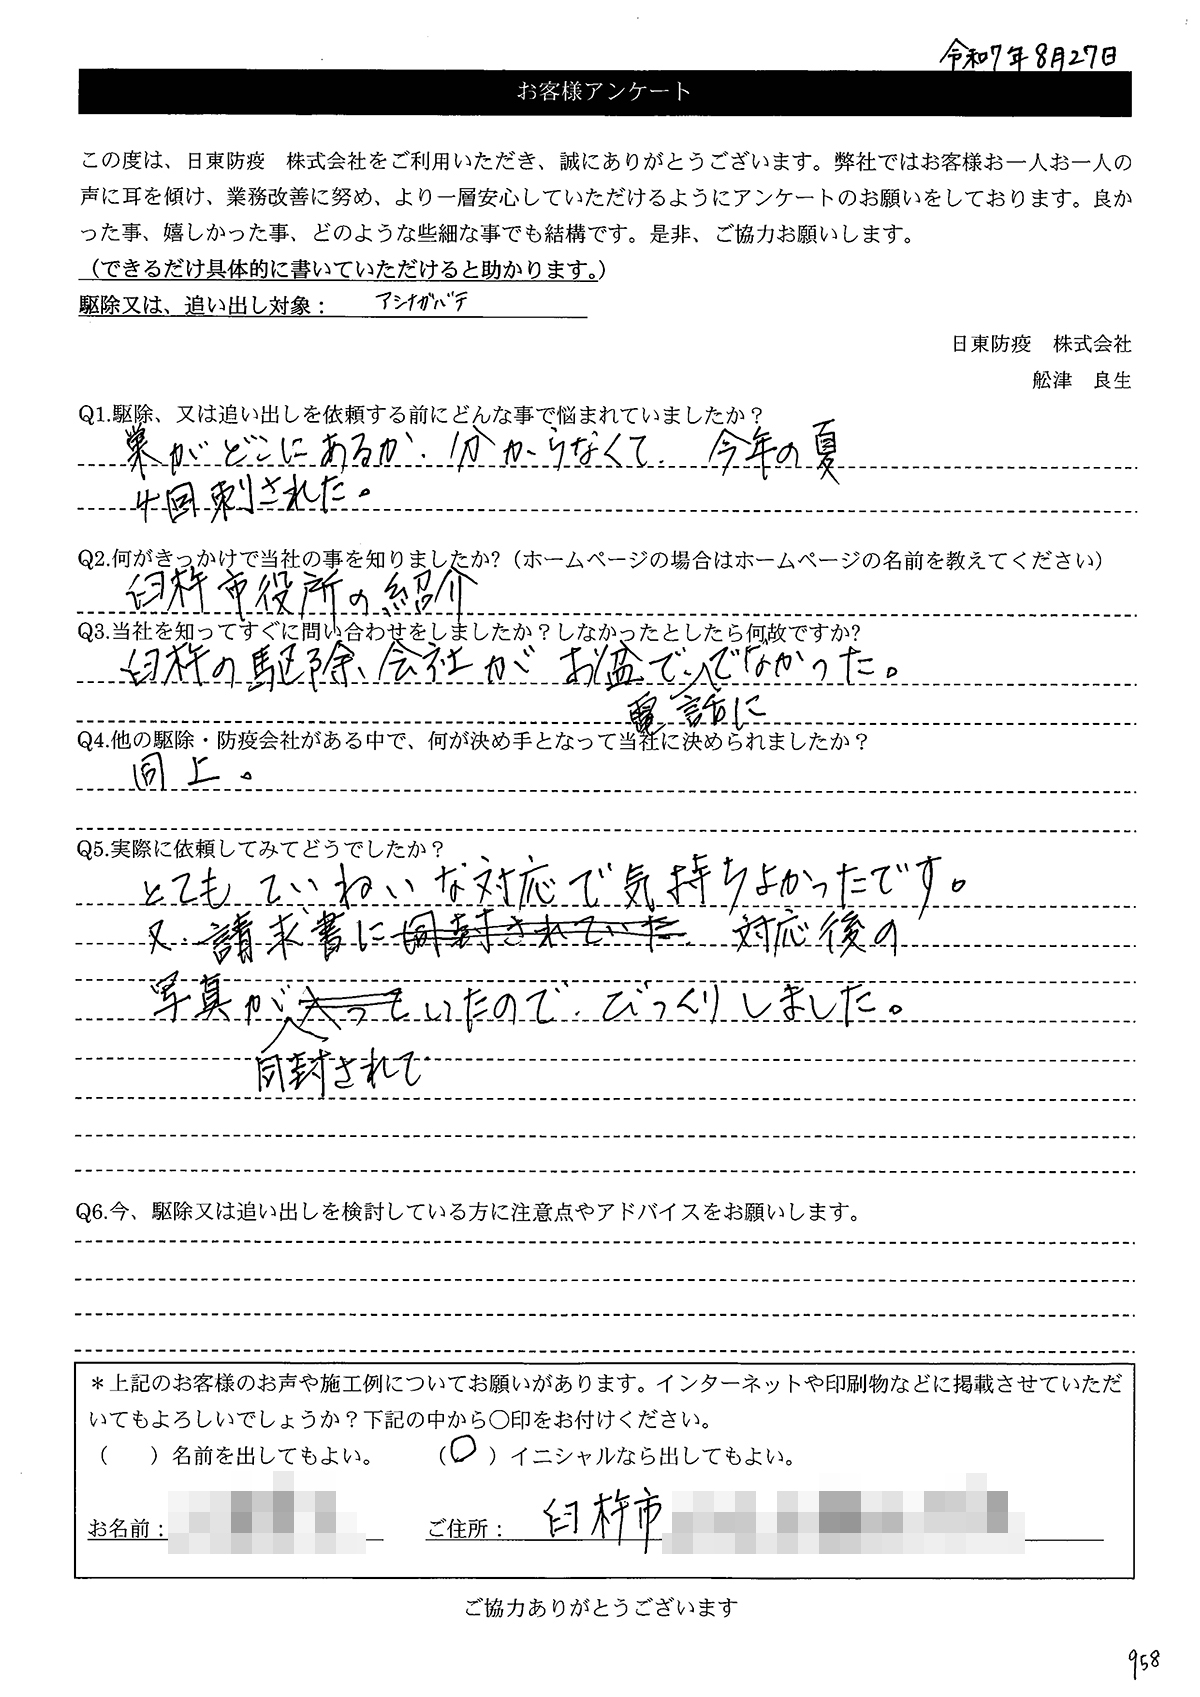 令和7年8月27日
お客様アンケート
この度は、日東防疫　株式会社をご利用いただき、誠にありがとうございます。弊社ではお客様お一人お一人の
声に耳を傾け、業務改善に努め、より一層安心していただけるようにアンケートのお願いをしております。良か
った事、嬉しかった事、どのような些細な事でも結構です。是非、ご協力お願いします。
（できるだけ具体的に書いていただけると助かります。）
駆除又は、追い出し対象： アシナガバチ
日東防疫　株式会社
舩津　良生
Q1.駆除、又は追い出しを依頼する前にどんな事で悩まれていましたか？
巣がどこにあるか、分からなくて、今年の夏
4回刺された。
Q2.何がきっかけで当社の事を知りましたか?（ホームページの場合はホームページの名前を教えてください）
臼杵市役所の紹介
Q3.当社を知ってすぐに問い合わせをしましたか？しなかったとしたら何故ですか?
臼杵の駆除、会社が お盆で、でなかった。
電話に
Q4.他の駆除・防疫会社がある中で、何が決め手となって当社に決められましたか？
同上。
Q5.実際に依頼してみてどうでしたか？
とてもていねいな対応で気持ちよかったです。
又、請求書に同封されていた、対応後の
写真が入っていたので、びっくりしました。
同封されて
Q6.今、駆除又は追い出しを検討している方に注意点やアドバイスをお願いします。
＊上記のお客様のお声や施工例についてお願いがあります。インターネットや印刷物などに掲載させていただ
いてもよろしいでしょうか？下記の中から〇印をお付けください。
（　　）名前を出してもよい。　　（〇）イニシャルなら出してもよい。
お名前：　　ご住所： 臼杵市
ご協力ありがとうございます
958